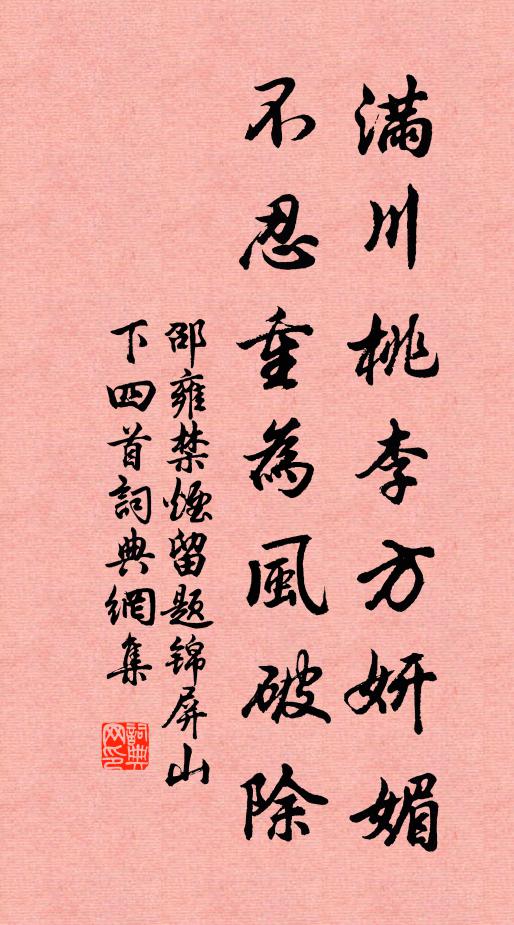 滿川桃李方妍媚
不忍重為風破除
邵雍禁煙留題錦屏山
下四首詞典網集
詞典
网印